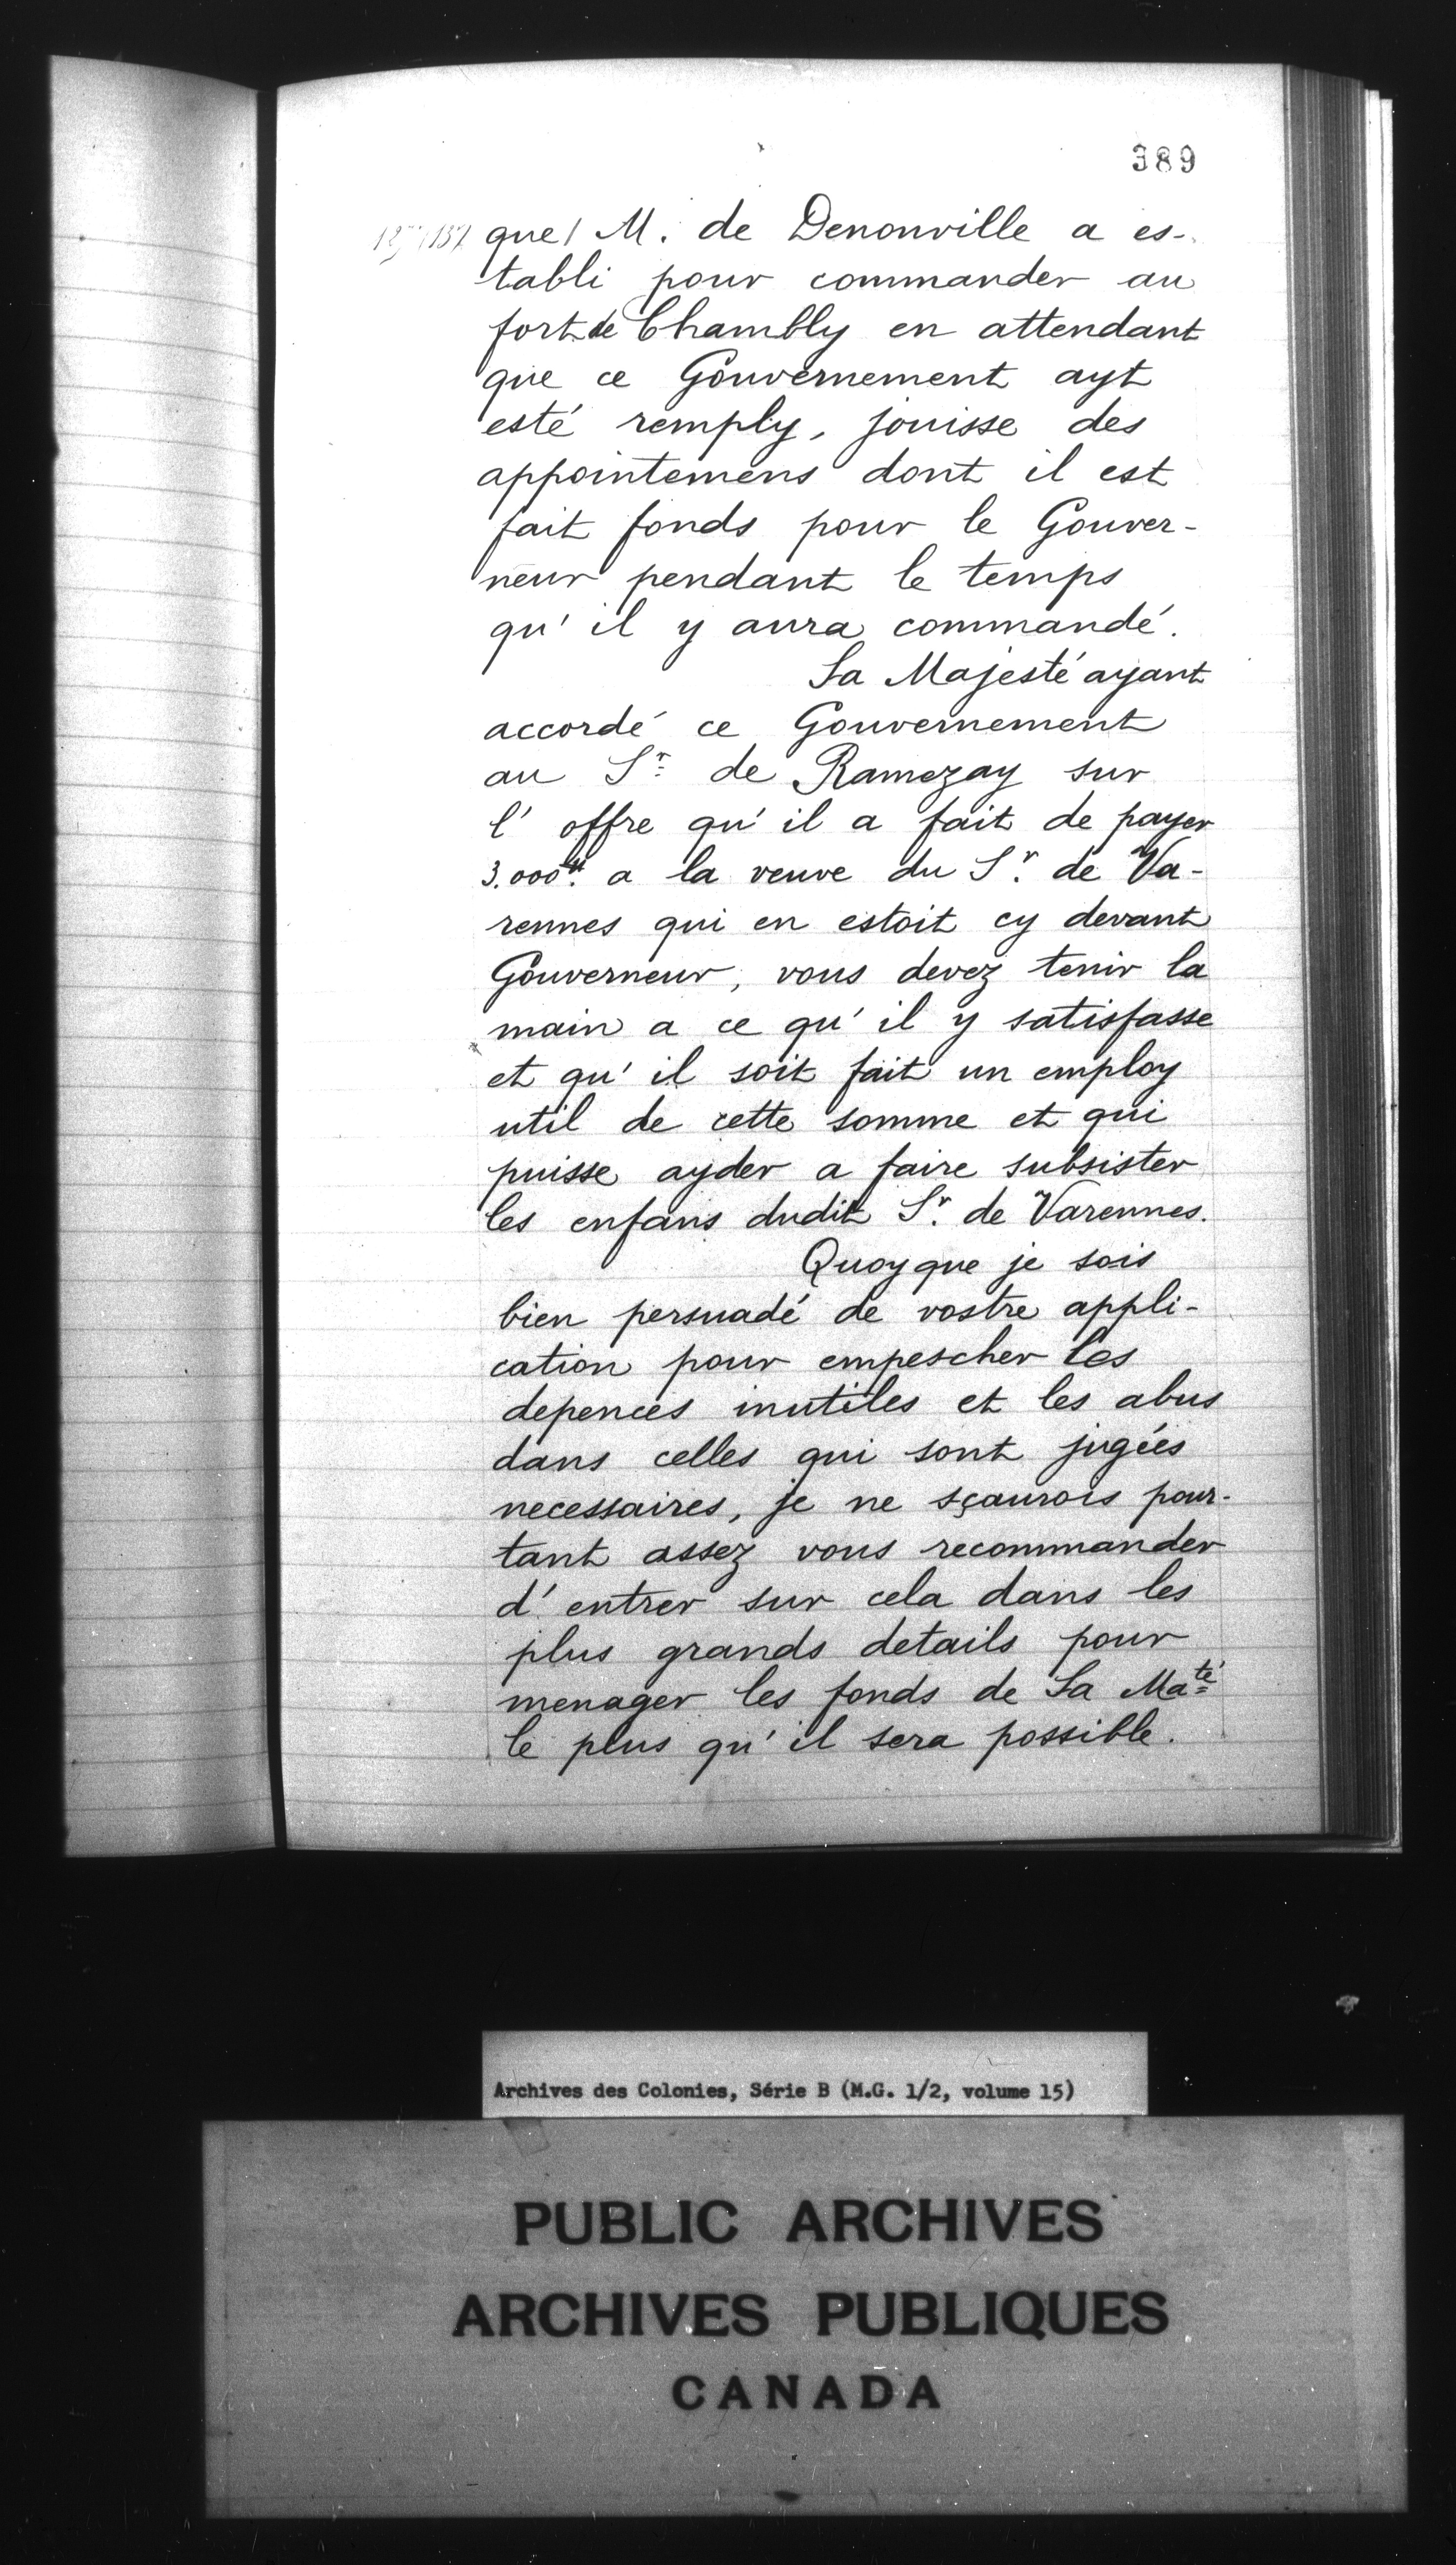 389
que / M. de Denonville a es-
tabli pour commander au
fort de Chambly en attendant
que ce Gouvernement ayt
esté remply, jouisse des
appointemens dont il est
fait fonds pour le Gouver-
neur pendant le temps
qu'il y aura commandé.
Sa Majesté ayant
accordé ce Gouvernement
au Sr. de Ramezay sur
l'offre qu'il a fait de payer
3.000tt. a la veuve du Sr. de Va-
rennes qui en estoit cy devant
Gouverneur, vous devez tenir la
main a ce qu'il y satisfasse
et qu'il soit fait un employ
util de cette somme et qui
puisse ayder a faire subsister
les enfans dudit Sr. de Varennes.
Quoyque je sois
bien persuadé de vostre appli-
cation pour empescher les
depences inutiles et les abus
dans celles qui sont jugées
necessaires, je ne sçaurois pour-
tant assez vous recommander
d'entrer sur cela dans les
plus grands details pour
menager les fonds de Sa Maté
le plus qu'il sera possible.
Archives des Colonies, Série B (M.G. 1/2, volume 15)
PUBLIC ARCHIVES
ARCHIVES PUBLIQUES
CANADA